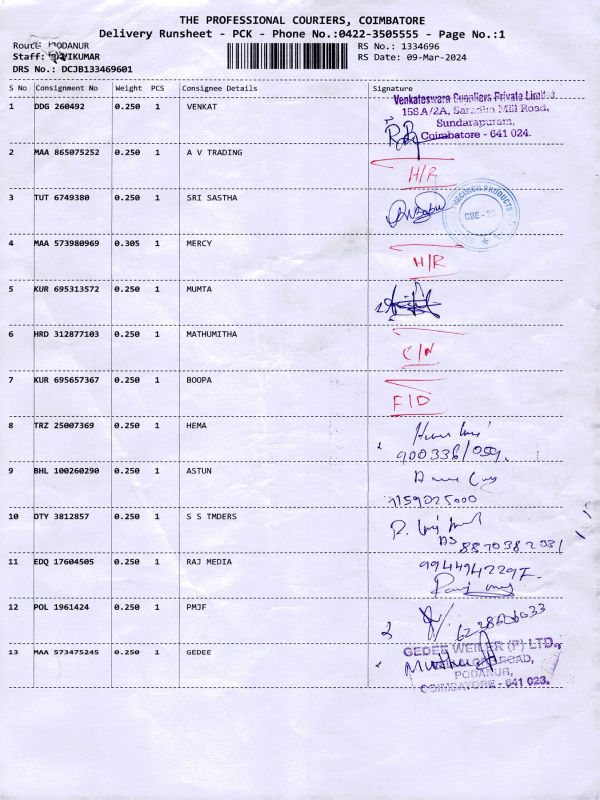 THE PROFESSIONAL COURIERS, COIMBATORE
Delivery Runsheet - PCK - Phone No.:0422-3505555 - Page No.:1
Route: PODANUR
RS No.: 1334696
Staff: RAVIKUMAR
RS Date: 09-Mar-2024
DRS No.: DCJB133469601
S No Consignment No Weight PCS Consignee Details Signature
1 DDG 260492 0.250 1 VENKAT
Venkateswara Suppliers Private Limited.
158 A/2A, Saradha Mill Road,
Sundarapuram,
Coimbatore - 641 024.
2 MAA 865075252 0.250 1 A V TRADING H/R
3 TUT 6749380 0.250 1 SRI SASTHA
PRECISION PRODUCTS
CBE - 23
4 MAA 573980969 0.305 1 MERCY H/R
5 KUR 695313572 0.250 1 MUMTA
6 HRD 312877103 0.250 1 MATHUMITHA C/N
7 KUR 695657367 0.250 1 BOOPA F/D
8 TRZ 25007369 0.250 1 HEMA
9 BHL 100260290 0.250 1 ASTUN
10 OTY 3812857 0.250 1 S S TMDERS
11 EDQ 17604505 0.250 1 RAJ MEDIA
12 POL 1961424 0.250 1 PMJF
13 MAA 573475245 0.250 1 GEDEE
GEDEE WEILER (P) LTD.,
ROAD,
PODANUR,
COIMBATORE - 641 023.